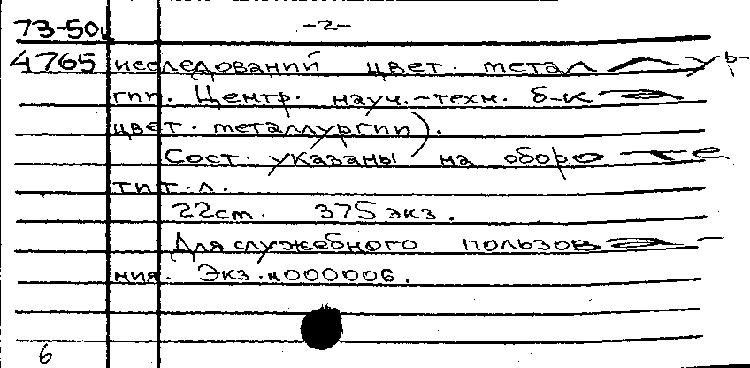 73-50 -2-
4765 исследований цвет. металлур-
гии. Центр. науч.-техн. б-ка
цвет. металлургии).
Сост. указаны на обороте
тит. л.
22см. 375 экз.
Для служебного пользова-
ния. Экз. N000006.
6